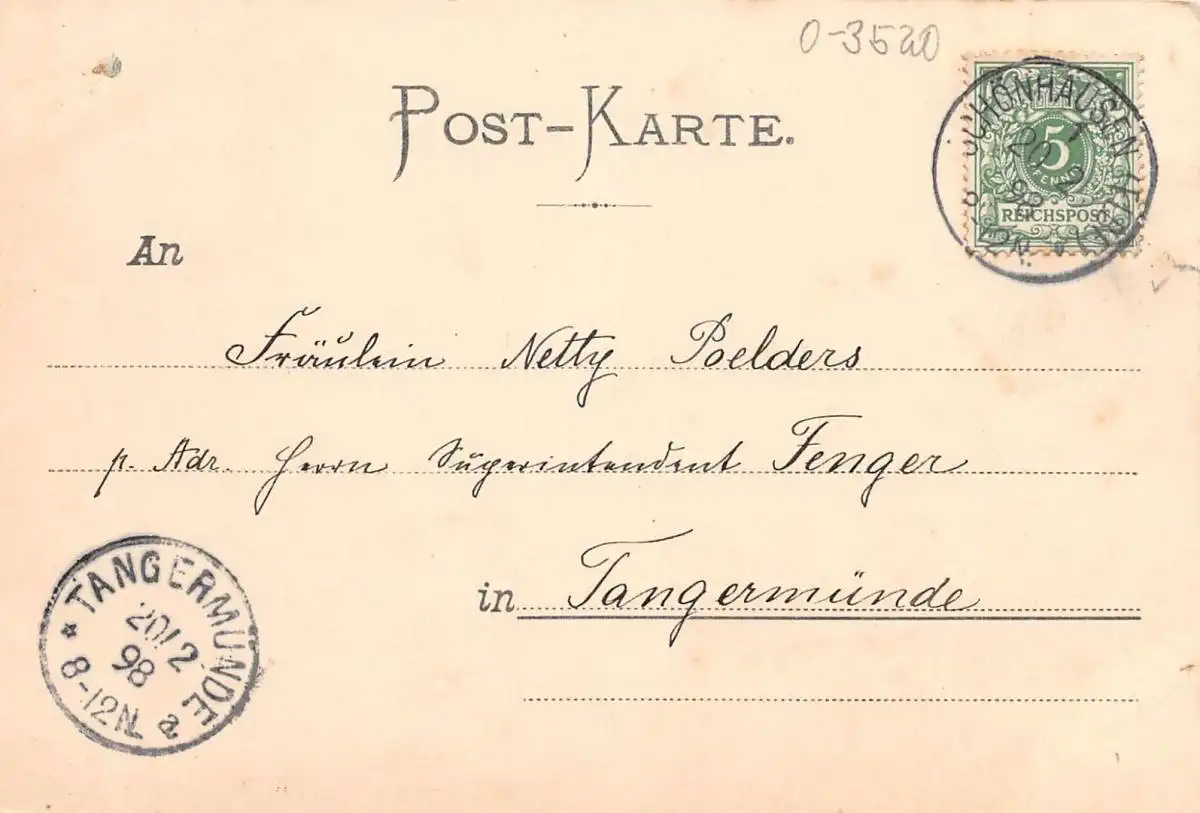 0-3520
POST-KARTE.
SCHÖNHAUSEN (ELBE)
20 2
98
5
PFENNIG
REICHSPOST
An
Fräulein Netty Poelders
p. Adr. Herrn Superintendent Fenger
in Tangermünde
* TANGERMÜNDE a
20/2
98
8-12N.